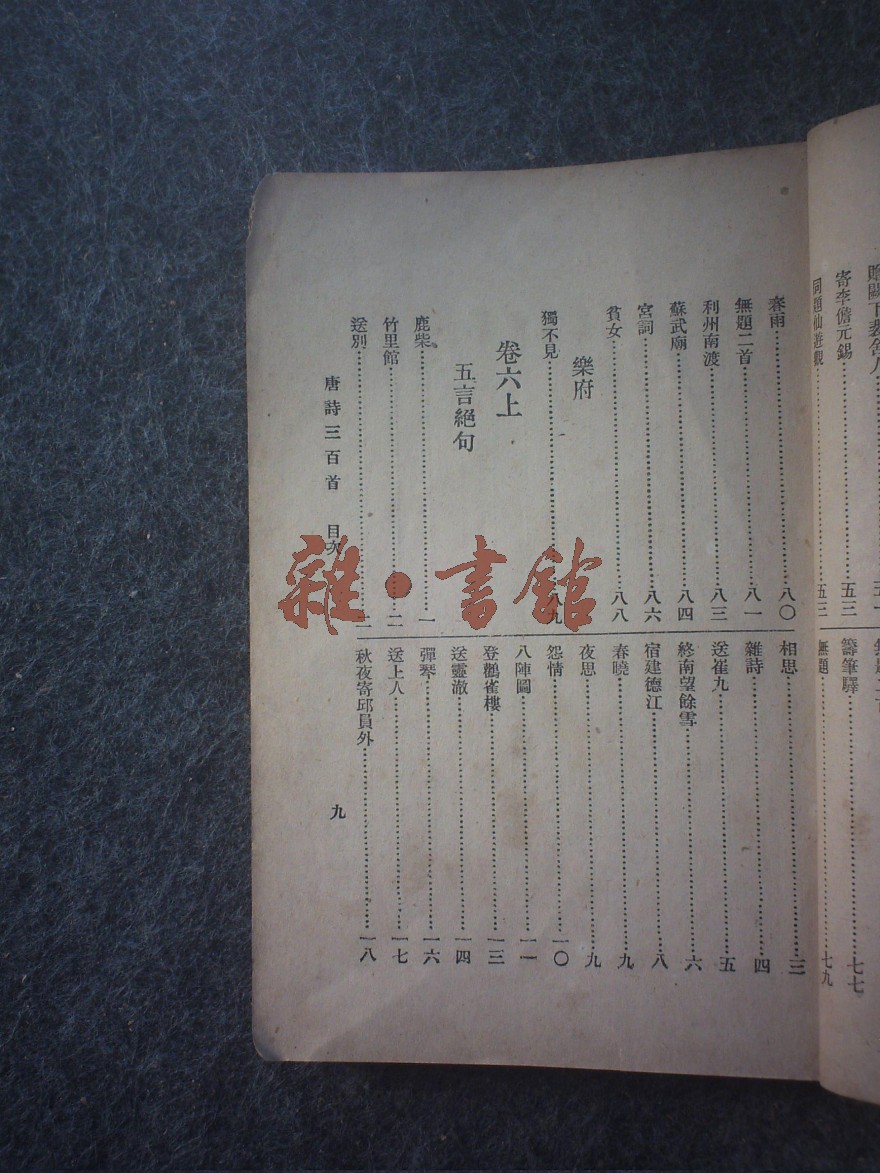 寄李儋元錫……五三
同題仙遊觀……五三
籌筆驛……七七
無題……七九
春雨……八〇
無題二首……八一
利州南渡……八三
蘇武廟……八四
宮詞……八六
貧女……八八
樂府
獨不見……八九
卷六上
五言絕句
鹿柴……一
竹里館……二
送別……二
相思……三
雜詩……四
送崔九……五
終南望餘雪……六
宿建德江……八
春曉……九
夜思……九
怨情……一〇
八陣圖……一一
登鸛雀樓……一三
送靈澈……一四
彈琴……一六
送上人……一七
秋夜寄邱員外……一八
唐詩三百首 目次 九
雜·書館